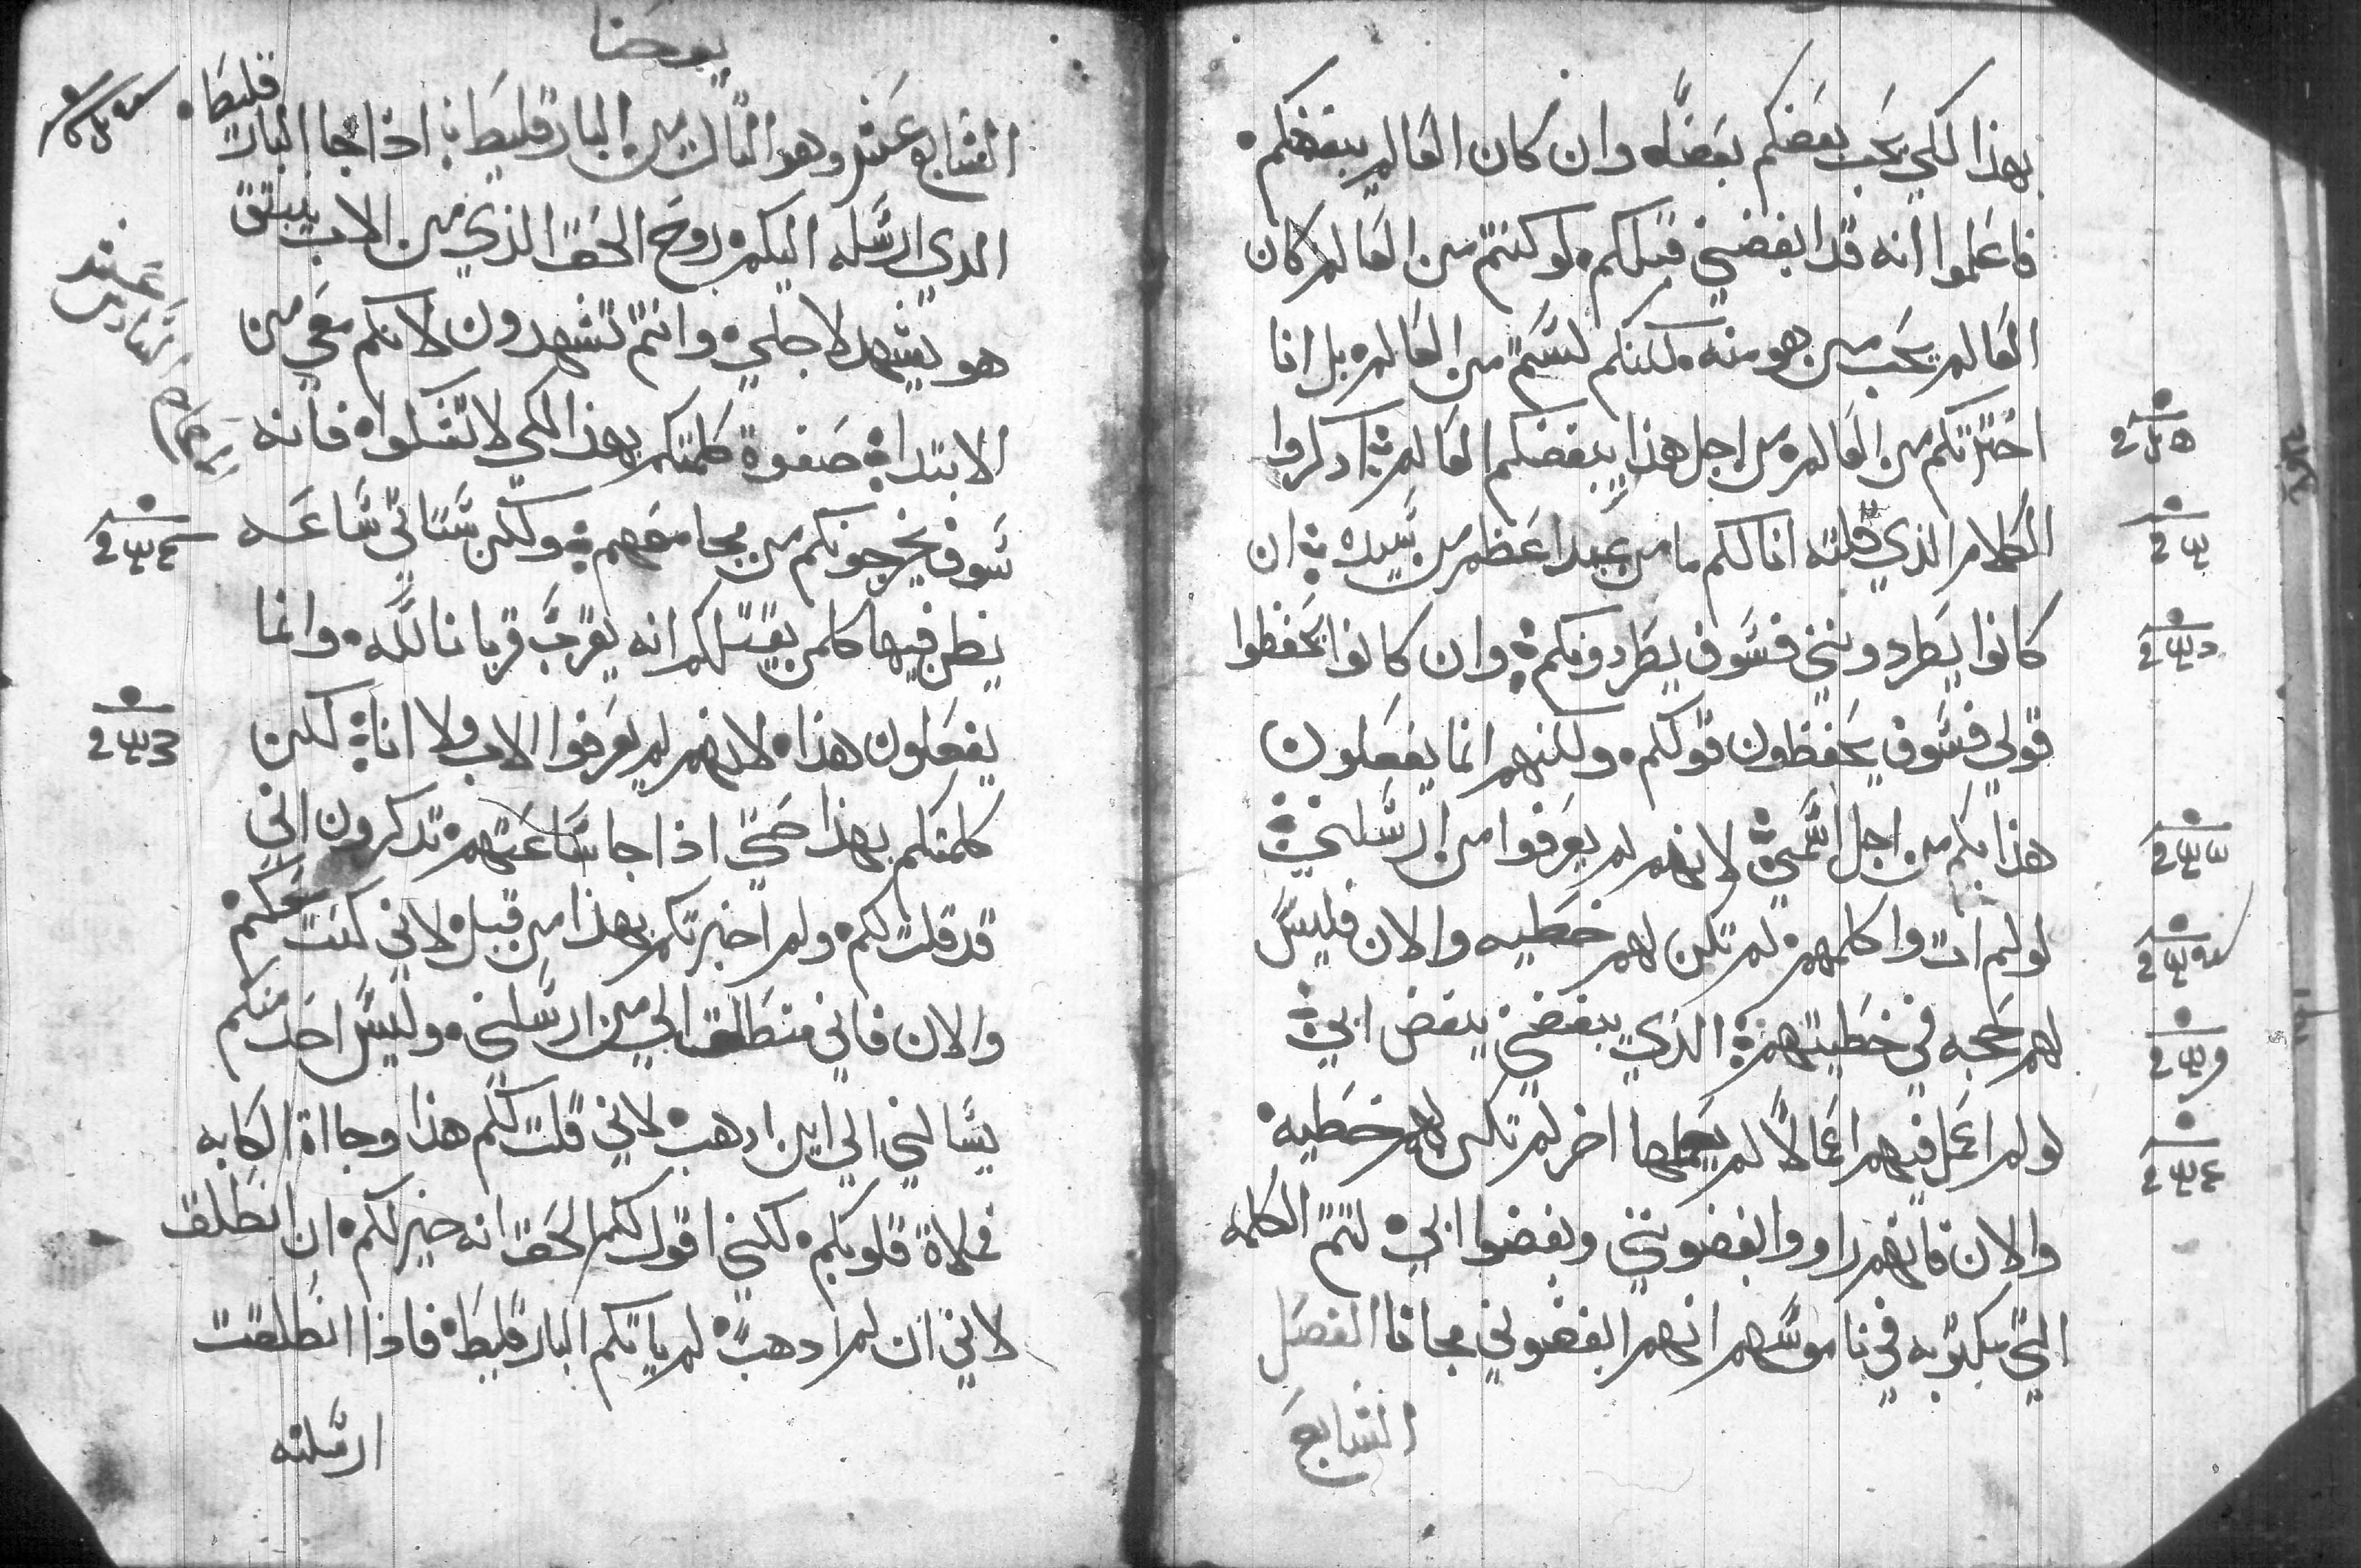 بهذا لكي يحب بعضكم بعضًا. وان كان العالم يبغضكم.
فاعلموا انه قد ابغضني قبلكم. لو كنتم من العالم لكان
العالم يحب من هو منه. لكنكم لستم من العالم. بل انا
اخترتكم من العالم. من اجل هذا يبغضكم العالم. اذكروا
الكلام الذي قلته انا لكم ما من عبد اعظم من سيده. ان
كانوا يطردونني فسوف يطردونكم. وان كانوا يحفظوا
قولي فسوف يحفظون قولكم. ولكنهم انما يفعلون
هذا بكم من اجل اسمي. لانهم لم يعرفوا من ارسلني.
لو لم ات واكلمهم. لم تكن لهم خطيه والان فليس
لهم حجه في خطيتهم. الذي يبغضني يبغض ابي.
لو لم اعمل فيهم اعمالاً لم يعملها اخر لم تكن لهم خطيه.
والان فانهم راوا وابغضونني وبغضوا ابي. لتتم الكلمه
التي مكتوبه في ناموسهم انهم ابغضوني مجانا الفصل
السابع
يوحنا
السابع عشر وهو الثالث من البارقليط. اذا جا البار
قليط.
الذي ارسله اليكم. روح الحق الذي من الاب ينبثق
هو يشهد لاجلي. وانتم تشهدون لانكم معي من
الابتدا. صفوة كلمتكم بهذا لكي لا تشكوا. فانه
سوف يخرجونكم من مجامعهم. ولكن ستاتي ساعه
يظن فيها كلمن يقتلكم انه يقرب قربانا لله. وانما
يفعلون هذا. لانهم لم يعرفوا الاب ولا انا. لكن
كلمتكم بهذا حتي اذا جا ساعتهم. تذكرون اني
قد قلت لكم. ولم اخبرتكم بهذا من قبل. لاني كنت معكم.
والان فاني منطلق الي من ارسلني. وليس احد منكم
يسالني الي اين اذهب. لاني قلت لكم هذا وجااة الكابه
فملاة قلوبكم. لكني اقول لكم الحق انه خير لكم. ان انطلق
لاني ان لم اذهب. لم ياتكم البارقليط. فاذا انطلقت
ارسلته